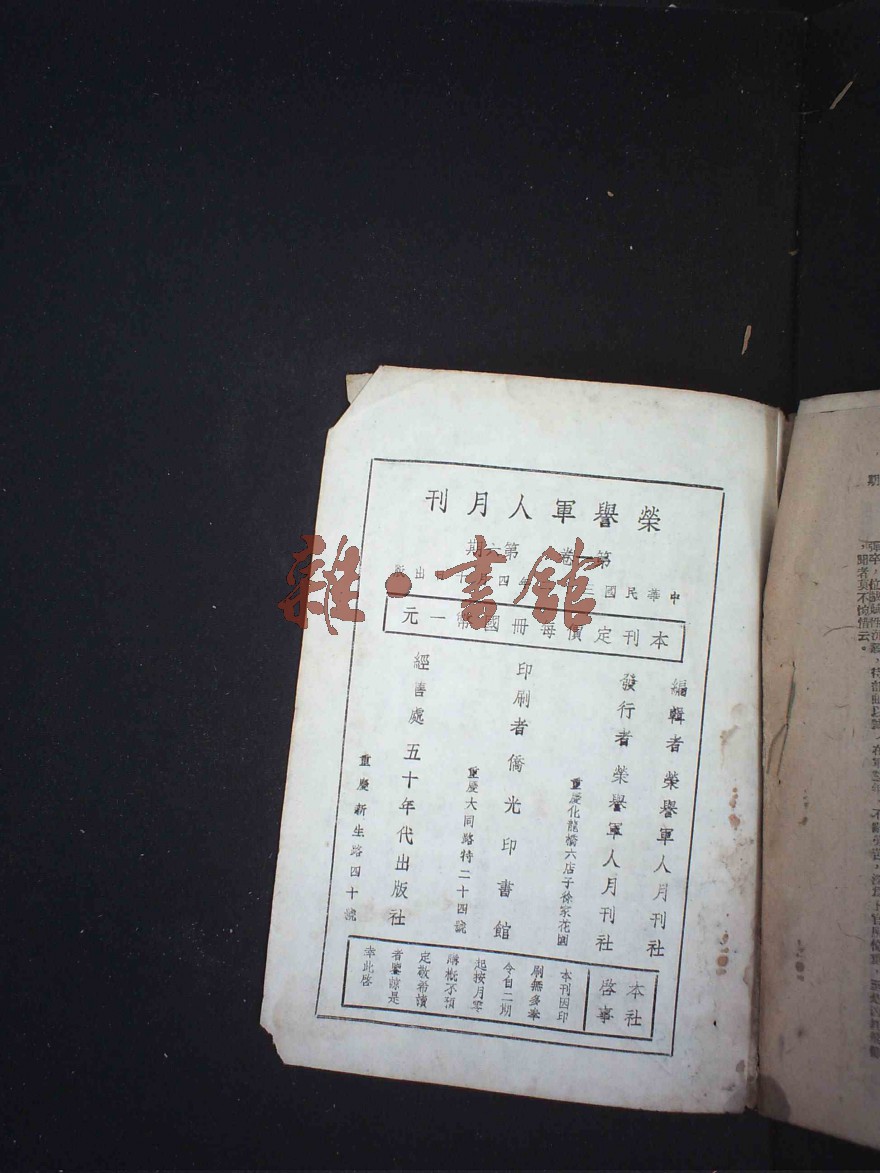 榮譽軍人月刊
第一卷 第六期
中華民國三 年四月 日出版
本刊定價每冊國幣一元
編輯者 榮譽軍人月刊社
發行者 榮譽軍人月刊社
重慶化龍橋六店子徐家花園
印刷者 僑光印書館
重慶大同路特二十四號
經售處 五十年代出版社
重慶新生路四十號
本社
啓事
本刊因印
刷無多茲
令自二期
起按月零
購概不預
定敬希讀
者鑒諒是
幸此啓
雜·書館
期
，聞者莫不惋惜云。